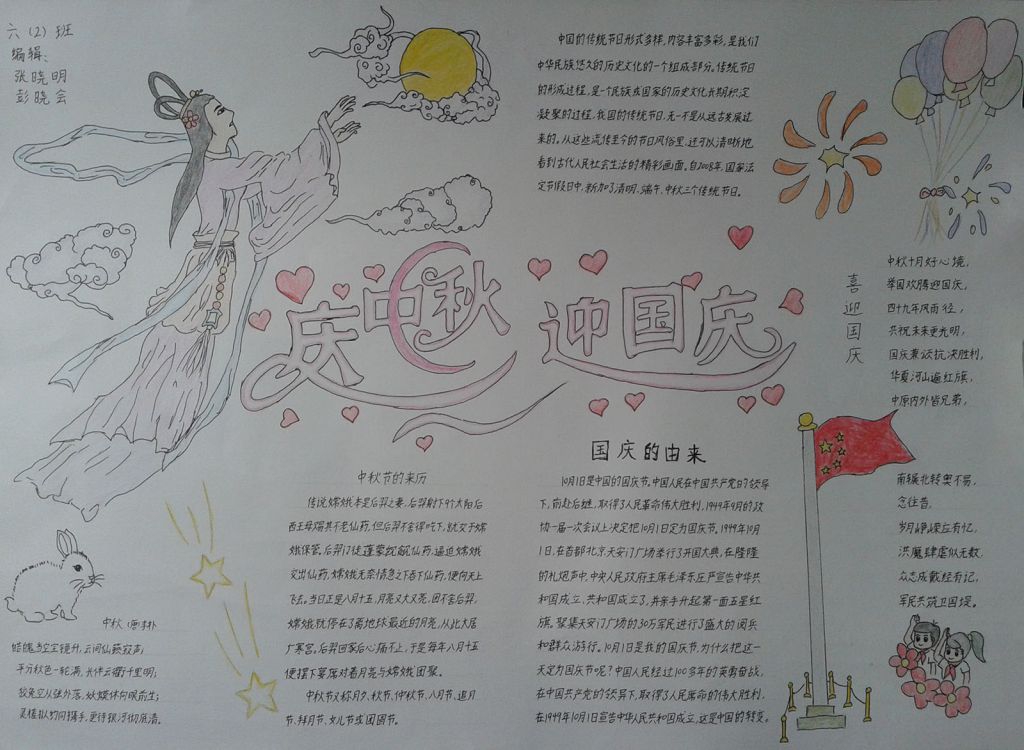 六（2）班
编辑：
张晓明
彭晓会
中国的传统节日形式多样，内容丰富多彩，是我们
中华民族悠久的历史文化的一个组成部分。传统节日
的形成过程，是一个民族或国家的历史文化长期积淀
凝聚的过程，我国的传统节日，无一不是从远古发展过
来的。从这些流传至今的节日风俗里，还可以清晰地
看到古代人民社会生活的精彩画面。自2008年，国家法
定节假日中，新加了清明、端午、中秋三个传统节日。
庆中秋 迎国庆
喜迎国庆
中秋十月好心境，
举国欢腾迎国庆，
四十九年风雨径，
共祝未来更光明，
国庆兼谈抗决胜利，
华夏河山遍红旗，
中原内外皆兄弟，
南辕北转奥不易，
念往昔，
岁月峥嵘左有忆，
洪魔肆虐似无数，
众志成戴经有记，
军民共筑卫国堤。
中秋节的来历
传说嫦娥本是后羿之妻，后羿射下9个太阳后
西王母赐其不老仙药，但后羿不舍得吃下，就交于嫦
娥保管。后羿门徒蓬蒙觊觎仙药，逼迫嫦娥
交出仙药，嫦娥无奈情急之下吞下仙药，便向天上
飞去。当日正是八月十五，月亮又大又亮，因不舍后羿，
嫦娥就停在了离地球最近的月亮，从此长居
广寒宫。后羿回家后心痛不止，于是每年八月十五
便摆下宴席对着月亮与嫦娥团聚。
中秋节又称月夕、秋节、仲秋节、八月节、追月
节、拜月节、女儿节或团圆节。
国庆的由来
10月1日是中国的国庆节，中国人民在中国共产党的领导
下，前赴后继，取得了人民革命伟大胜利，1949年9月的政
协一届一次会议上决定把10月1日定为国庆节。1949年10月
1日，在首都北京天安门广场举行了开国大典，在隆隆
的礼炮声中，中央人民政府主席毛泽东庄严宣告中华共
和国成立，共和国成立了，并亲手升起第一面五星红
旗。聚集天安门广场的30万军民进行了盛大的阅兵
和群众游行。10月1日是我们的国庆节，为什么把这一
天定为国庆节呢？中国人民经过100多年的英勇奋战，
在中国共产党的领导下，取得了人民革命的伟大胜利，
在1949年10月1日宣告中华人民共和国成立，这是中国的转变。
中秋（唐）李朴
皓魄当空宝镜升，云间仙籁寂声；
平分秋色一轮满，长伴云衢千里明；
狡兔空从弦外落，妖蟆休向眼前生；
灵槎拟约同携手，更待银河彻底清。